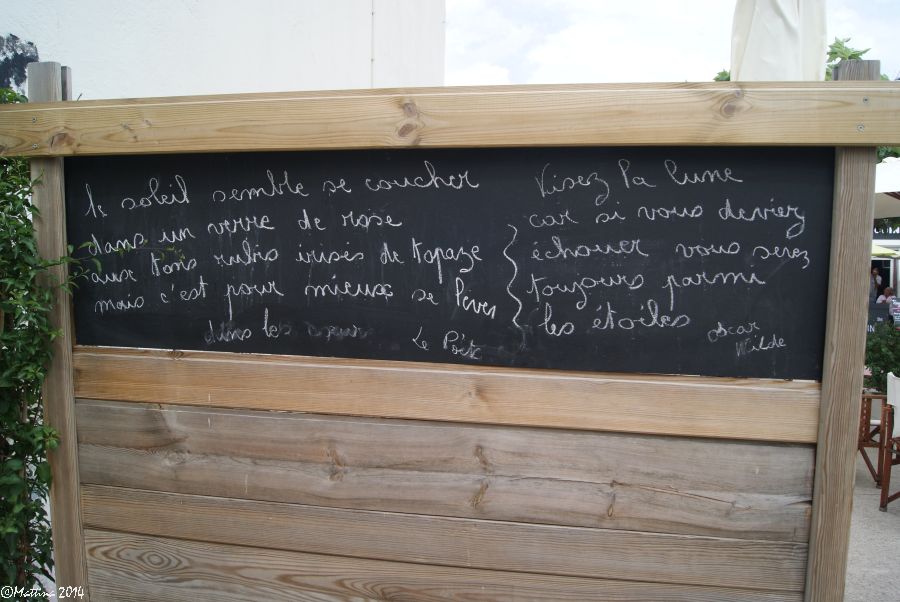 le soleil semble se coucher
dans un verre de rosé
aux tons rubis irisés de topaze
mais c'est pour mieux se lever
dans les cœurs
Le Poète
Visez la lune
car si vous deviez
échouer vous serez
toujours parmi
les étoiles
Oscar
Wilde
©Mattina 2014